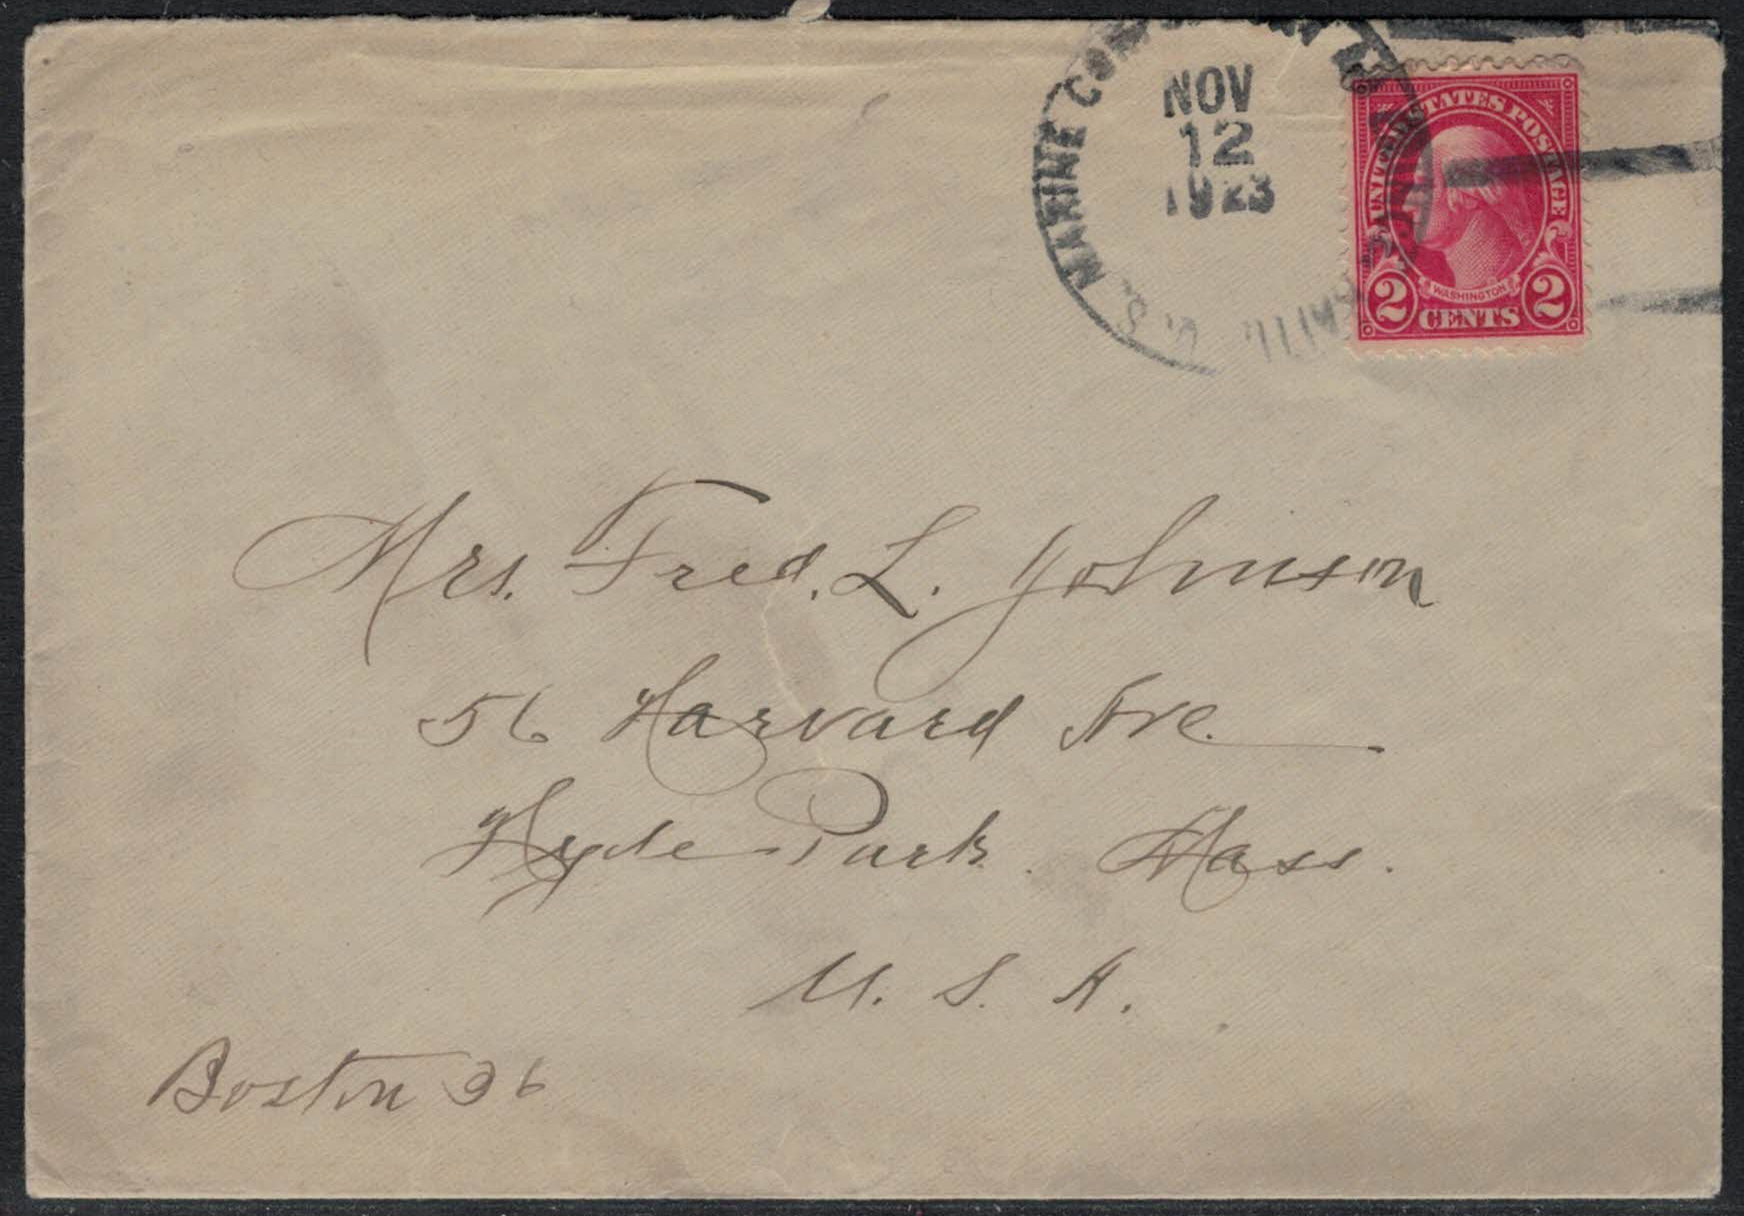 U. S. MARINE
NOV
12
1923
UNITED STATES POSTAGE
WASHINGTON
2 CENTS 2
Mrs. Fred. L. Johnson
56 Harvard Ave.
Hyde Park. Mass.
U. S. A.
Boston 36